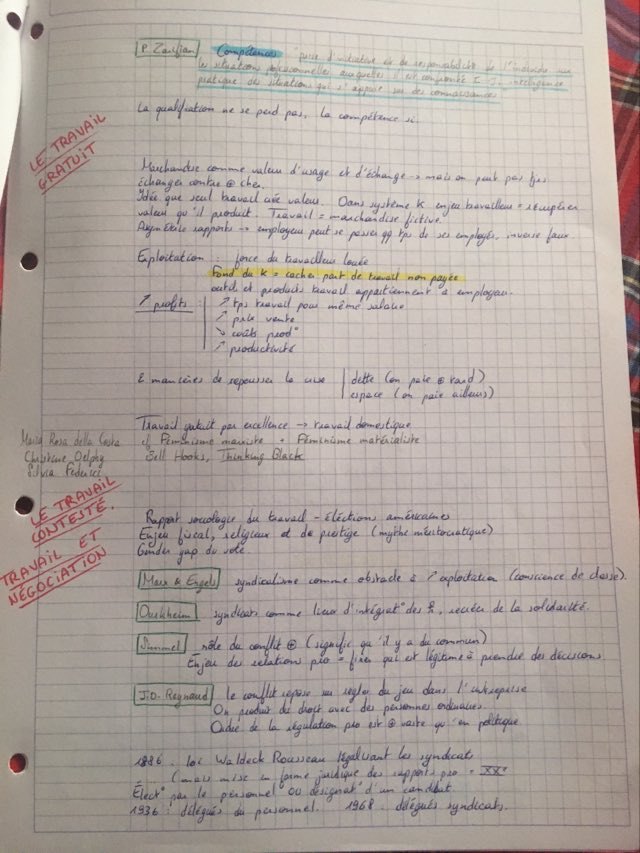 P. Zarifian Compétences "prise d'initiative et de responsabilité de l'individu sur
le situation professionnelles auxquelles il est confronté [...] intelligence
pratique des situations qui s'appuie sur des connaissances"
La qualification ne se perd pas, la compétence si.
LE TRAVAIL
GRATUIT
Marchandise comme valeur d'usage et d'échange → mais on peut pas tjrs
échanger contre ⊕ cher.
Idée que seul travail crée valeur. Dans système K enjeu travailleur = récupérer
valeur qu'il product. Travail = marchandise fictive.
Asymétrie rapports → employeur peut se passer qq tps de ses employés, inverse faux.
Exploitation : force du travailleur louée
Fond du K = cacher part de travail non payée
outil et products travail appartiennent à employeur.
↗ profits : ↗ tps travail pour même salaire
↗ prix vente
↘ coûts prod°
↗ productivité
2 manières de repousser la crise | dette (on paie ⊕ tard)
espace (on paie ailleurs)
Travail gratuit par excellence → travail domestique
cf Féminisme marxiste + Féminisme matérialiste
Bell Hooks, Thinking Black
Maria Rosa della Costa
Christine Delphy
Silvia Federici
LE TRAVAIL
CONTESTÉ.
TRAVAIL ET
NÉGOCIATION
Rapport sociologie du travail - élections américaines
Enjeu fiscal, religieux et de prestige (mythe méritocratique)
Gender gap du vote.
Marx & Engels syndicalisme comme obstacle à l'exploitation (conscience de classe).
Durkheim syndicats comme lieux d'intégrat° des, recréer de la solidarité.
Simmel rôle du conflit ⊕ (signific qu'il y a du commun)
Enjeu des relations pro = fixer qui est légitime à prendre des décisions
J.D. Reynaud le conflit repose sur règles du jeu dans l'entreprise
On produit du droit avec des personnes ordinaires
Ordre de la régulation pro est ⊕ vaste qu'en politique
1886 : loi Waldeck Rousseau légalisant les syndicats
(mais mise en forme juridique des rapports pro = XX°
Élect° par le personnel OU désignat° d'un candidat
1936 : délégués du personnel. 1968 : délégués syndicats.